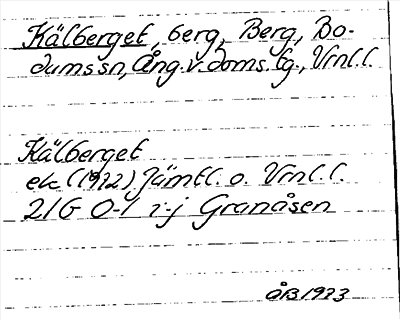 Kälberget, berg, Berg, Bo-
dumssn, Ång. v. doms. tg., Vrnl.l.
Kälberget
ek (1972) Jämtl. o. Vrnl.l.
21G 0-1 i-j Granåsen
ÅB 1973